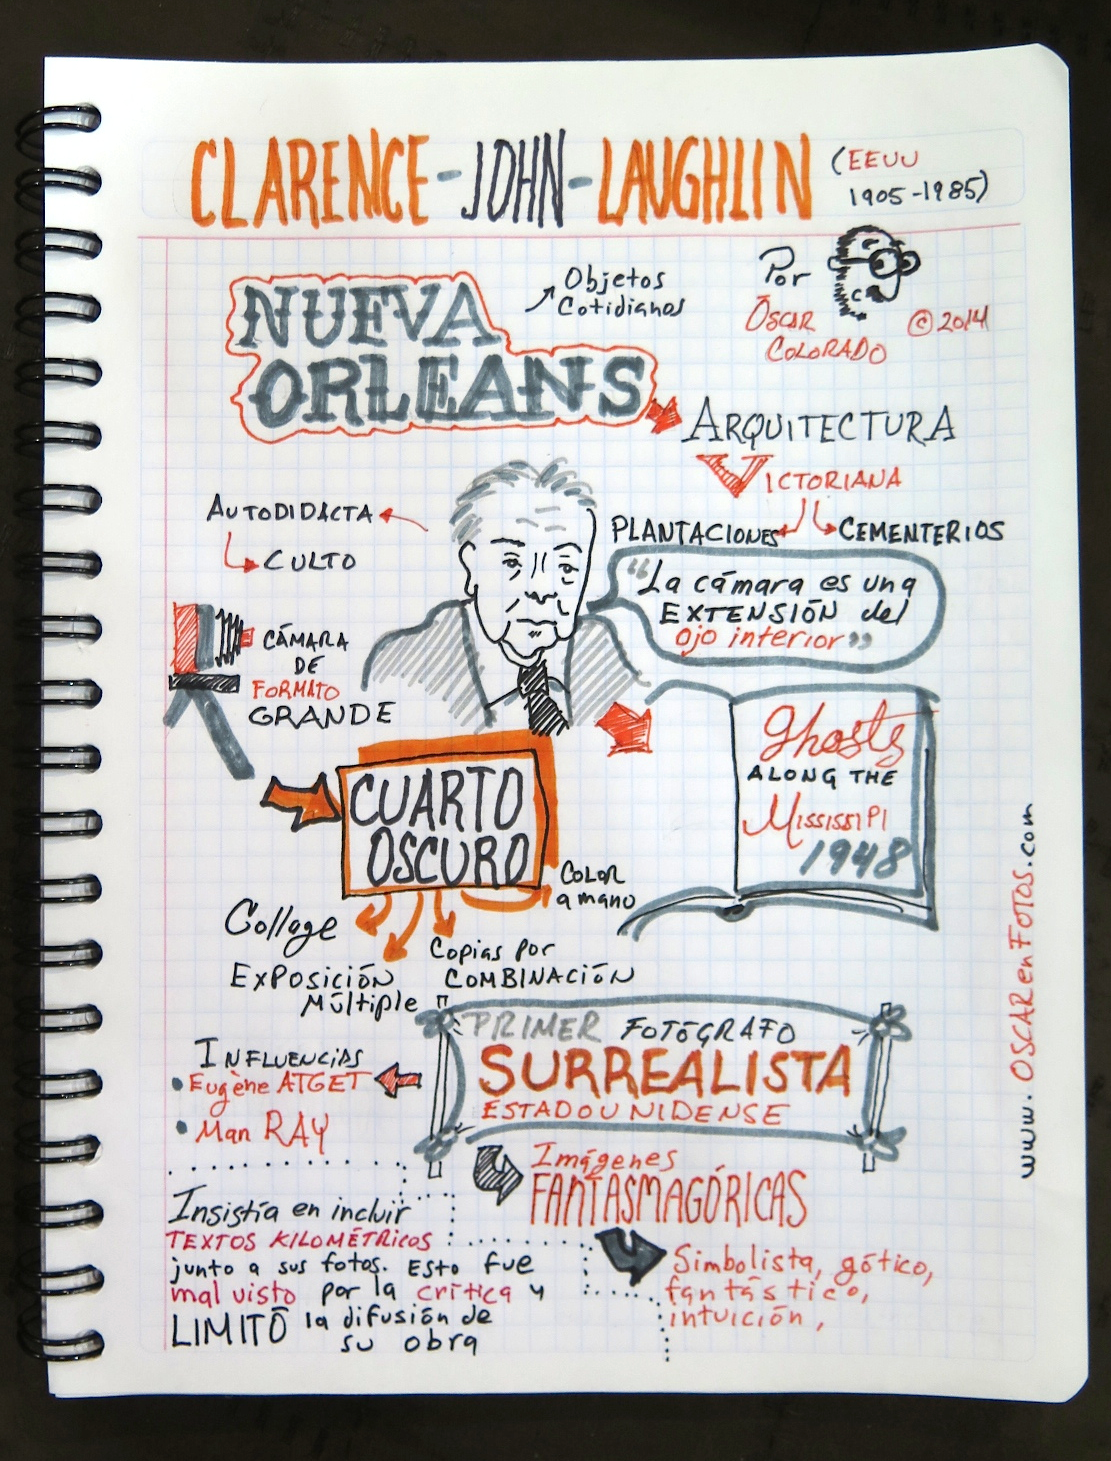 CLARENCE-JOHN-LAUGHLIN
(EEUU
1905-1985)
Por
OSCAR
COLORADO
© 2014
NUEVA
ORLEANS
Objetos
Cotidianos
ARQUITECTURA
VICTORIANA
PLANTACIONES
CEMENTERIOS
AUTODIDACTA
CULTO
"La cámara es una
EXTENSIÓN del
ojo interior"
CÁMARA
DE
FORMATO
GRANDE
Ghosts
ALONG THE
MISSISSIPI
1948
CUARTO
OSCURO
COLOR
a mano
Collage
EXPOSICIÓN
Múltiple
Copias por
COMBINACIÓN
PRIMER FOTÓGRAFO
SURREALISTA
ESTADOUNIDENSE
INFLUENCIAS
• Eugène ATGET
• Man RAY
Imágenes
FANTASMAGÓRICAS
Simbolista, gótico,
fantástico,
intuición,
Insistía en incluir
TEXTOS KILOMÉTRICOS
junto a sus fotos. Esto fue
mal visto por la crítica y
LIMITÓ la difusión de
su obra
www.OSCARenFOTOS.com